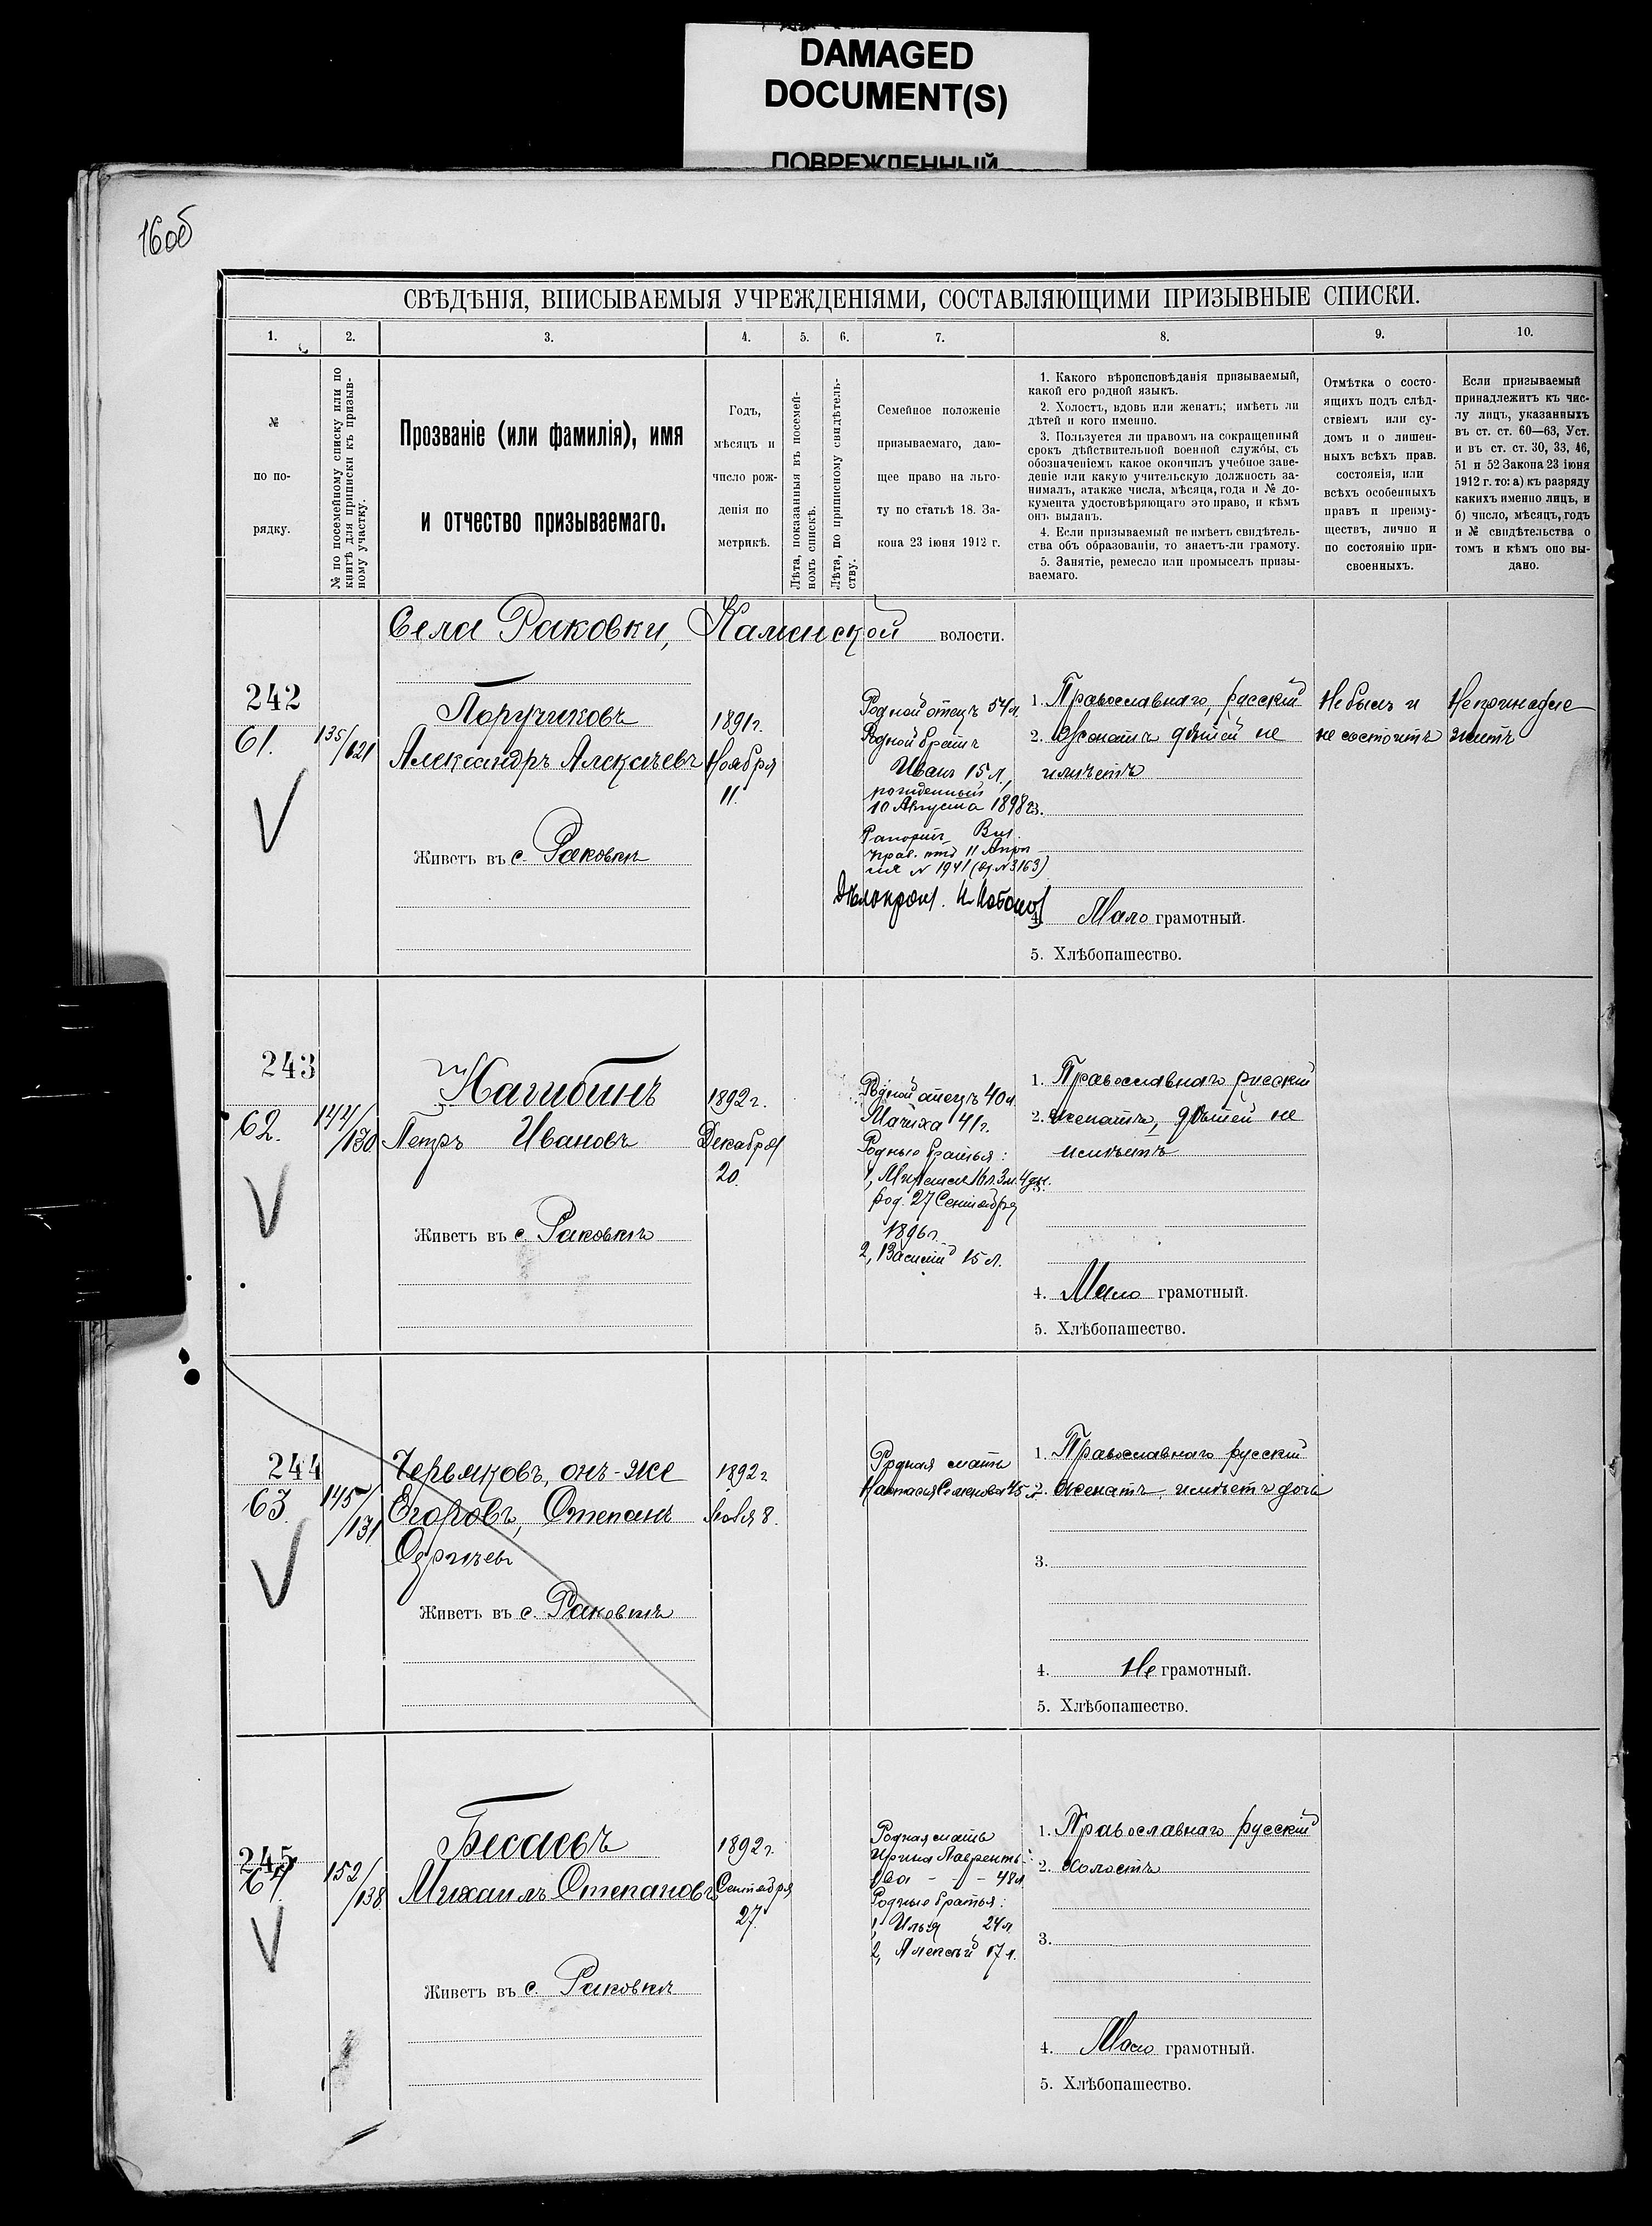 DAMAGED
DOCUMENT(S)
ПОВРЕЖДЕННЫЙ
16об
СВѢДѢНІЯ, ВПИСЫВАЕМЫЯ УЧРЕЖДЕНІЯМИ, СОСТАВЛЯЮЩИМИ ПРИЗЫВНЫЕ СПИСКИ.
1. 2. 3. 4. 5. 6. 7. 8. 9. 10.
№
по по-
рядку.
№ по посемейному списку или по
книгѣ для приписки къ призыв-
ному участку.
Прозваніе (или фамилія), имя
и отчество призываемаго.
Годъ,
мѣсяцъ и
число рож-
денія по
метрикѣ.
Лѣта, показанныя въ посемей-
номъ спискѣ.
Лѣта, по приписному свидѣтель-
ству.
Семейное положеніе
призываемаго, даю-
щее право на льго-
ту по статьѣ 18. За-
кона 23 іюня 1912 г.
1. Какого вѣроисповѣданія призываемый,
какой его родной языкъ.
2. Холостъ, вдовъ или женатъ; имѣетъ ли
дѣтей и кого именно.
3. Пользуется ли правомъ на сокращенный
срокъ дѣйствительной военной службы, съ
обозначеніемъ какое окончилъ учебное заве-
деніе или какую учительскую должность за-
нималъ, атакже числа, мѣсяца, года и № до-
кумента удостовѣряющаго это право, и кѣмъ
онъ выданъ.
4. Если призываемый не имѣетъ свидѣтель-
ства объ образованіи, то знаетъ-ли грамоту.
5. Занятіе, ремесло или промыселъ призы-
ваемаго.
Отмѣтка о состо-
ящихъ подъ слѣд-
ствіемъ или су-
домъ и о лишен-
ныхъ всѣхъ прав.
состоянія, или
всѣхъ особенныхъ
правъ и преиму-
ществъ, лично и
по состоянію при-
своенныхъ.
Если призываемый
принадлежитъ къ чис-
лу лицъ, указанныхъ
въ ст. ст. 60—63, Уст.
и въ ст. ст. 30, 33, 46,
51 и 52 Закона 23 іюня
1912 г. то: а) къ разряду
какихъ именно лицъ, и
б) число, мѣсяцъ, годъ
и № свидѣтельства о
томъ и кѣмъ оно вы-
дано.
Села Раковки, Каменской волости.
242
61.
135/121
Поручиковъ
Александръ Алексѣевъ
Живетъ въ с. Раковкѣ
1891г.
Ноября
11.
Родной отецъ 54 л.
Родной братъ
Иванъ 15 л.,
рожденный
10 Августа 1898 г.
Рапортъ Вол.
прав. отъ 11 Апрѣ-
ля № 1941 (вх. № 3163)
1. Православнаго, русскій
2. Женатъ дѣтей не
имѣетъ
3.
4. Мало грамотный.
5. Хлѣбопашество.
Не былъ и
не состоитъ
Не принадле-
житъ
243
62.
144/130
Нагибинъ
Петръ Ивановъ
Живетъ въ с. Раковкѣ
1892 г.
Декабря
20.
Родной отецъ 40 л.
Мачиха 41 г.
Родные братья:
род. 27 Сентября
1896 г.
2, Василій 15 л.
1. Православнаго русскій
2. женатъ, дѣтей не
имѣетъ
3.
4. Мало грамотный.
5. Хлѣбопашество.
244
63.
145/131
Червяковъ, онъ-же
Егоровъ, Степанъ
Сергѣевъ
Живетъ въ с. Раковкѣ
1892 г
8.
Родная мать
Настасія Семенова 45 л.
1. Православнаго русскій
2. Женатъ, имѣетъ дочь
3.
4. Не грамотный.
5. Хлѣбопашество.
245
64.
152/138
Бесаевъ
Михаилъ Степановъ
Живетъ въ с. Раковкѣ
1892 г.
Сентября
27.
Родная мать
Ирина Лавренть-
ева - - - 48 л
Родные братья:
1, Илья 24 л
2, Алексѣй 17 л.
1. Православнаго русскій
2. Холостъ
3.
4. Мало грамотный.
5. Хлѣбопашество.